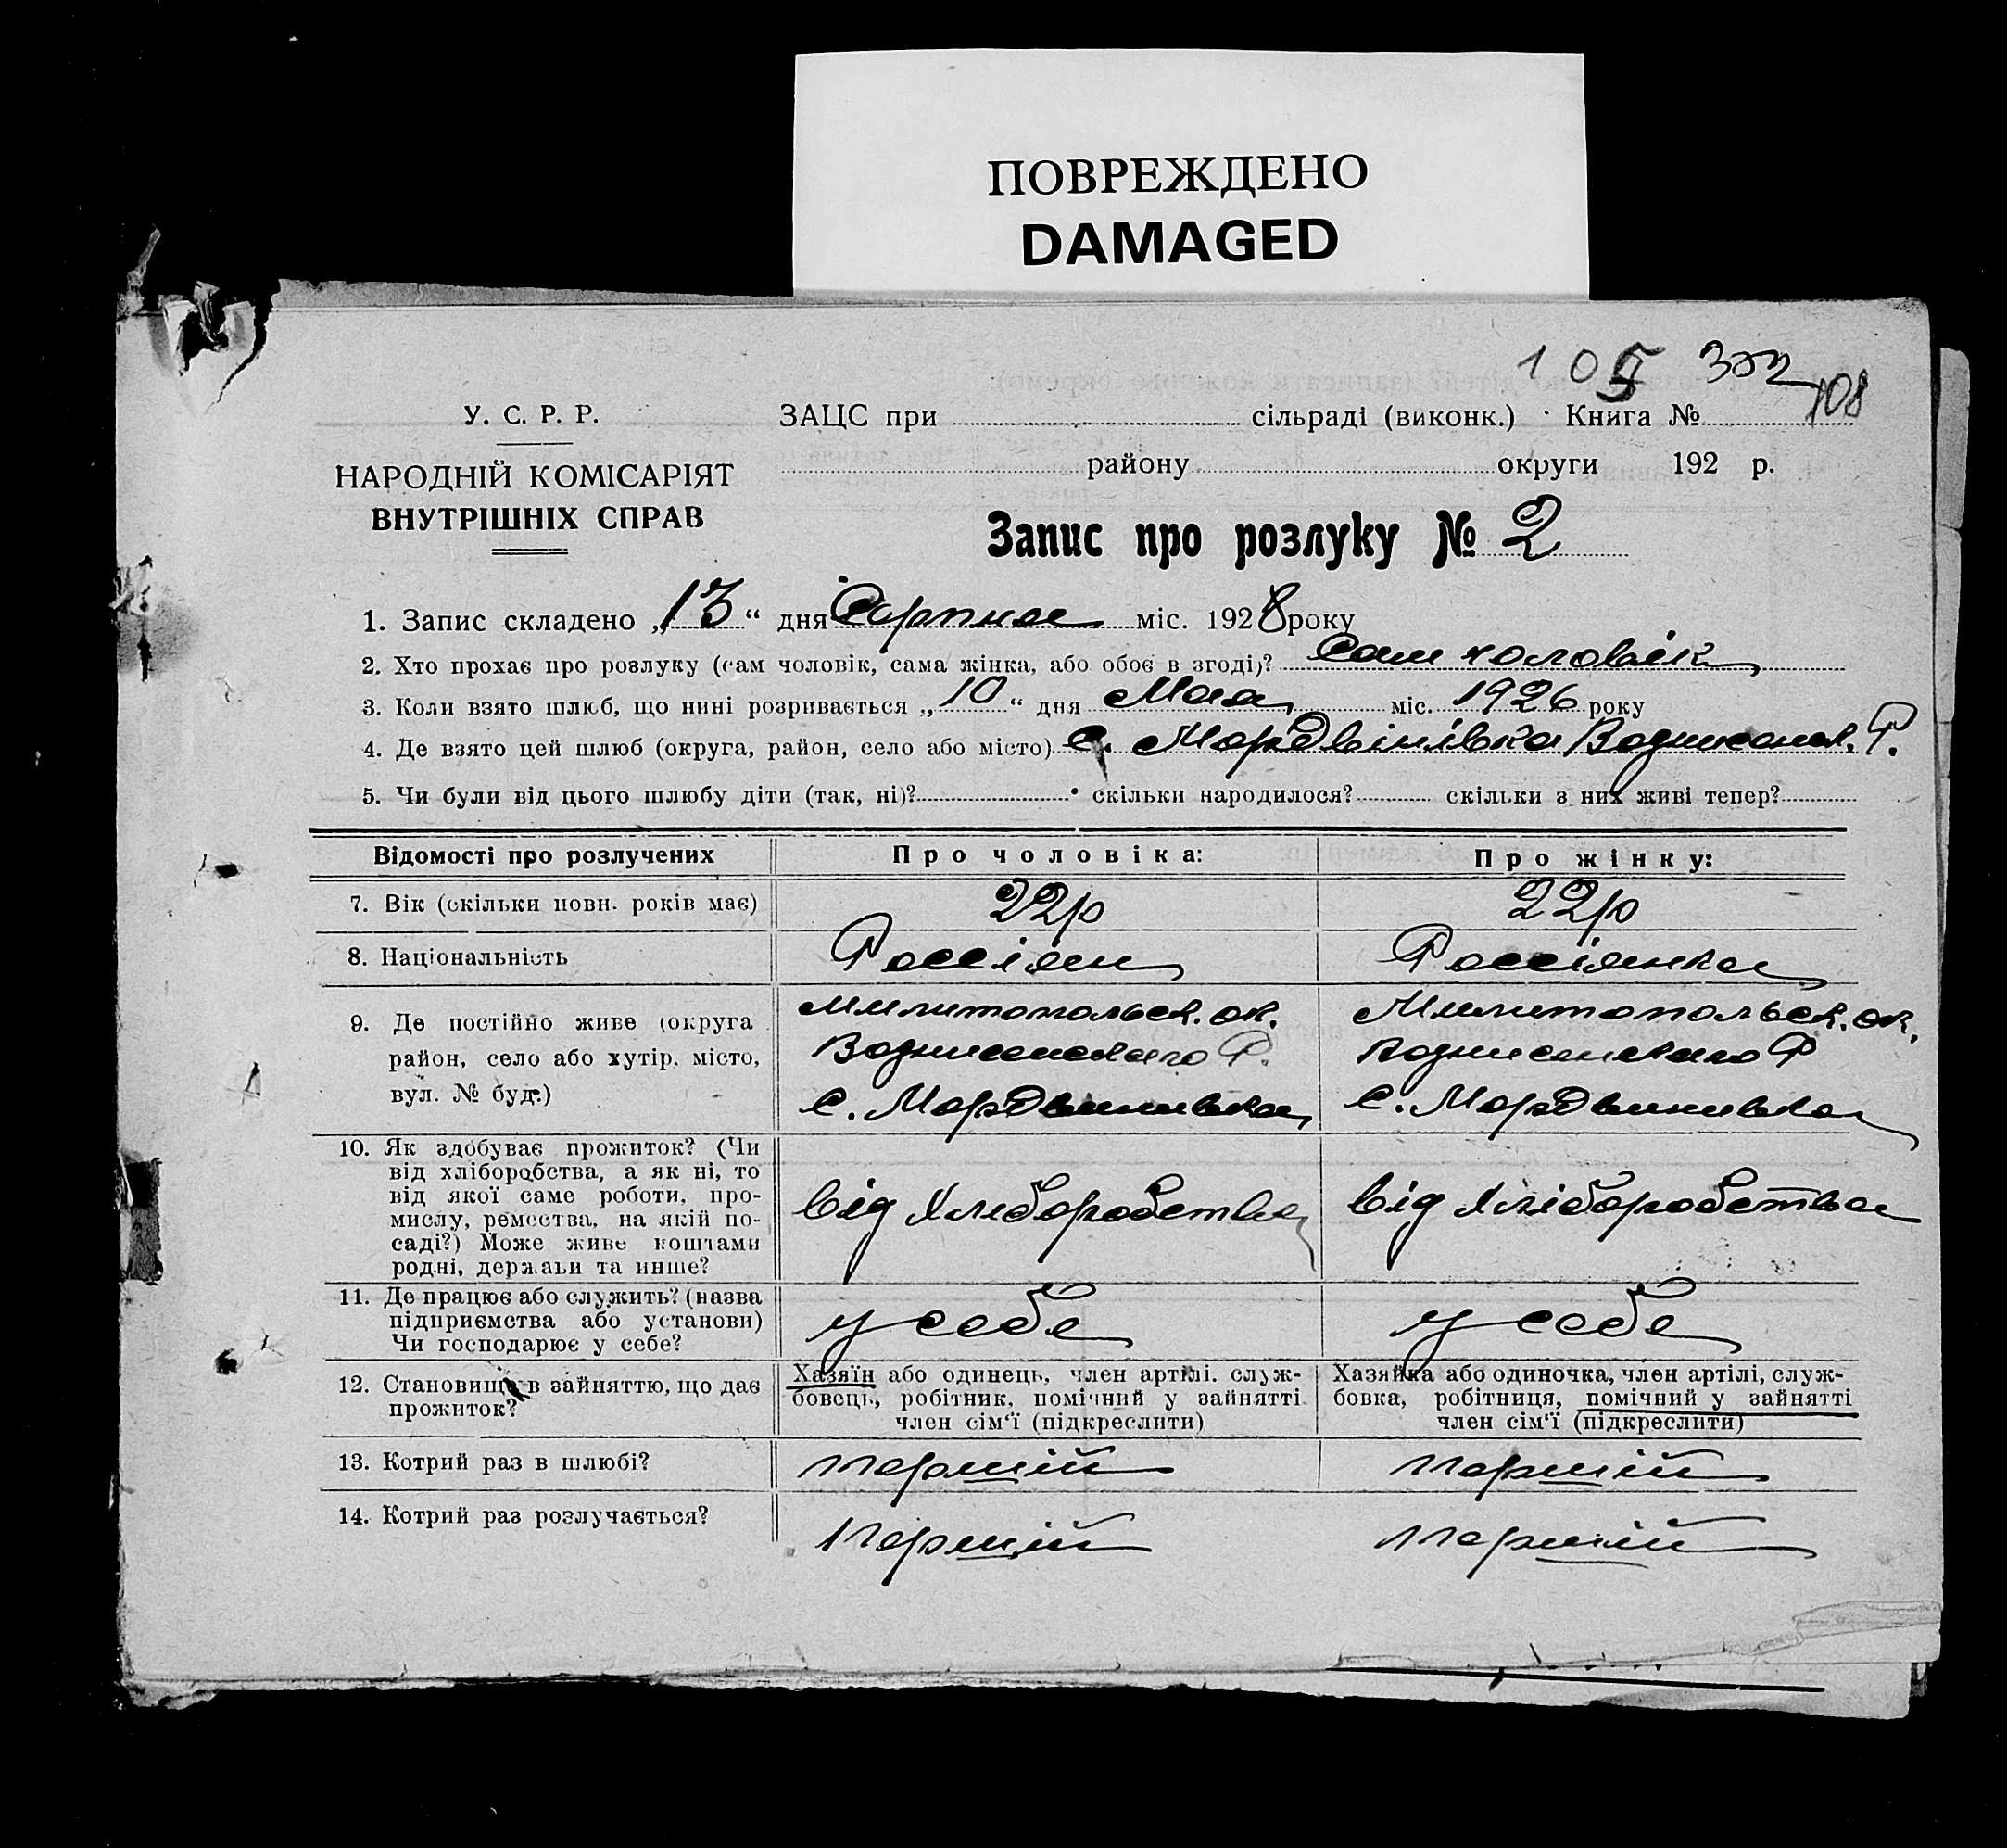 ПОВРЕЖДЕНО
DAMAGED
105 302 108
У. С. Р. Р.
НАРОДНІЙ КОМІСАРІЯТ
ВНУТРІШНІХ СПРАВ
ЗАЦС при сільраді (виконк.) Книга №
району округи 192 р.
Запис про розлуку № 2
1. Запис складено „13“ дня Серпня міс. 1928 року
2. Хто прохає про розлуку (сам чоловік, сама жінка, або обоє в згоді)? Сам чоловік
3. Коли взято шлюб, що нині розривається „10“ дня Мая міс. 1926 року
4. Де взято цей шлюб (округа, район, село або місто) с. Мордвінівка Р.
5. Чи були від цього шлюбу діти (так, ні)? скільки народилося? скільки з них живі тепер?
Відомості про розлучених Про чоловіка: Про жінку:
7. Вік (скільки повн. років має) 22р 22р
8. Національність Россіян Россіянка
9. Де постійно живе (округа район, село або хутір, місто, вул. № буд.)
Милитопольск. ок.
Р.
с. Мордвинивка
Милитопольск. ок.
Р
с. Мордвинивка
10. Як здобуває прожиток? (Чи
від хліборобства, а як ні, то
від якої саме роботи, про-
мислу, ремества, на якій по-
саді?) Може живе коштами
родні, держави та инше?
від Хліборобства
від Хліборобства
11. Де працює або служить? (назва
підприємства або установи)
Чи господарює у себе?
у себе
у себе
12. Становище в зайняттю, що дає
прожиток?
Хазяїн або одинець, член артілі, служ-
бовець, робітник, помічний у зайнятті
член сім'ї (підкреслити)
Хазяйка або одиночка, член артілі, служ-
бовка, робітниця, помічний у зайнятті
член сім'ї (підкреслити)
13. Котрий раз в шлюбі? першій першій
14. Котрий раз розлучається? першій першій